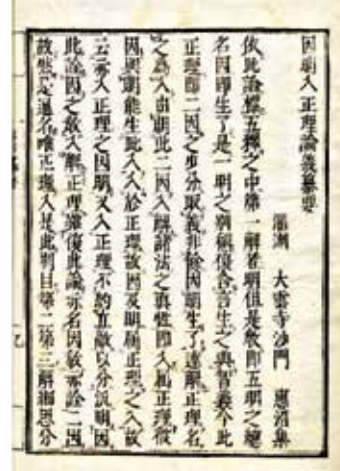 因明入正理論義纂要
淄洲 大雲寺沙門 惠沼集
依此論標五釋之中第一解者明但是教即五明之總
名因即生了是一明之別稱復合言生之與智義今此
正理即二因之分取義非餘因明生了解正理名
之為入由明此二因入解諸法之真性即入屬正理
因與明能生此入入於正理故因及明屬正理之入故
云入正理之因明又入正理不約立敵以分說明因
此詮因之教入解正理雖復此論亦名因教亦詮二因
故然定過名唯正理入是此別目第二第三解相思分